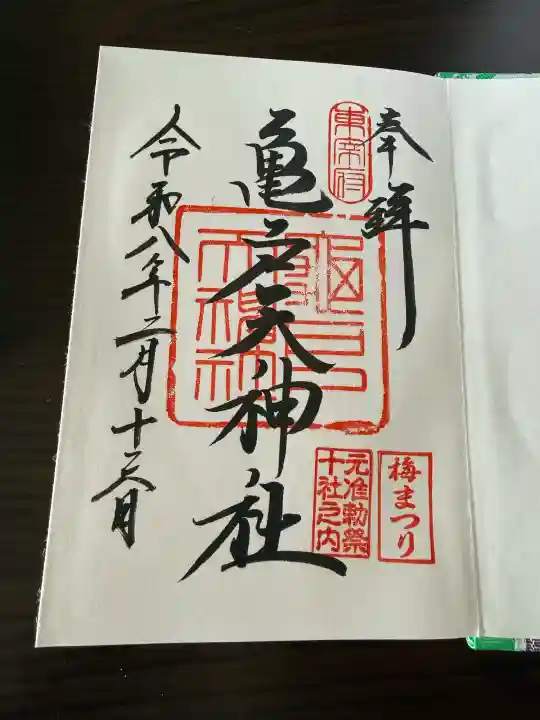 奉拝
東宰府
亀戸天神社
梅まつり
元准勅祭
十社之内
令和八年二月十六日